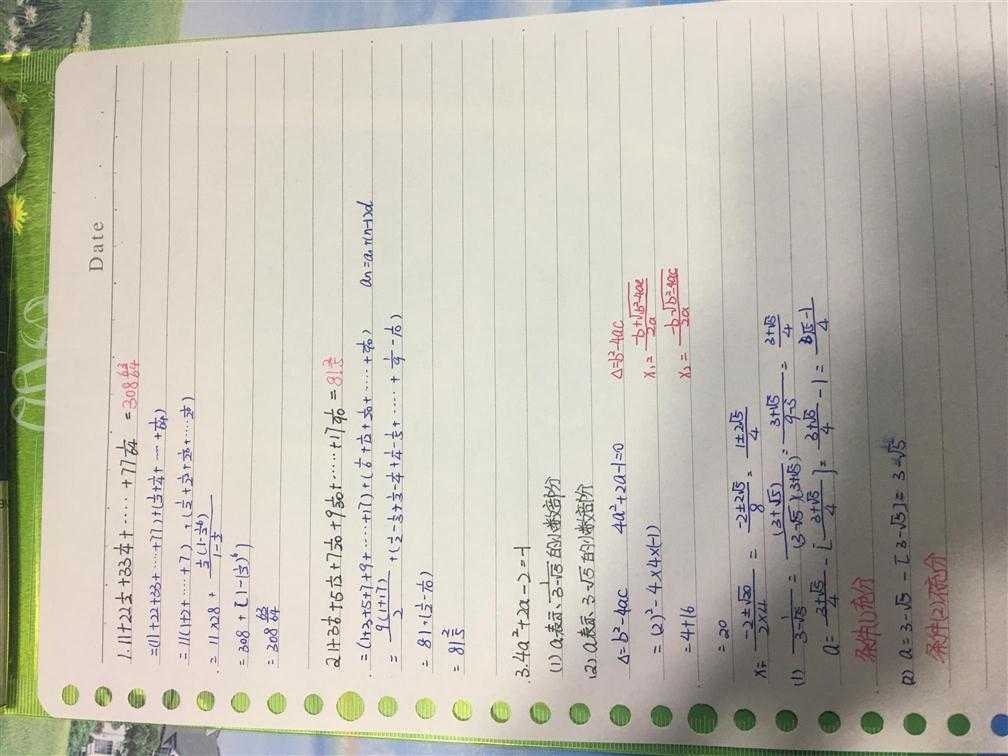 Date
1. 11+22½+33¼+……+77 1/64 = 308 63/64
=(11+22+33+……+77)+(½+¼+…+1/64)
= 11(1+2+……+7) + (1/2+1/2²+1/2³+……1/2⁶)
= 11×28 + ½(1-1/2⁶)/(1-½)
= 308 + [1-(½)⁶]
= 308 63/64
2 1+3 1/6+5 1/12+7 1/20+9 1/30+……+17 1/90 = 81 2/5
= (1+3+5+7+9+……+17)+(1/6+1/12+1/20+……+1/90) an=a₁+(n-1)xd
= 9(1+17)/2 + (½-⅓+⅓-¼+¼-1/5+……+1/9-1/10)
= 81+(½-1/10)
= 81 2/5
3. 4a²+2a-2=-1
(1) a表示 1/(3-√5) 的小数部分
(2) a表示 3-√5 的小数部分
Δ=b²-4ac 4a²+2a-1=0 Δ=b²-4ac
= (2)²-4×4×(-1) x₁= (-b+√(b²-4ac))/2a
=4+16 x₂= (-b-√(b²-4ac))/2a
=20
x= (-2±√20)/(2×4) = (-2±2√5)/8 = (1±2√5)/4
(1) 1/(3-√5) = 1(3+√5)/((3-√5)(3+√5)) = (3+√5)/(9-5) = (3+√5)/4
a= (3+√5)/4 - [(3+√5)/4] = (3+√5)/4 - 1 = (√5-1)/4
条件(1)充分
(2) a=3-√5-[3-√5]=3-√5
条件(2)不充分